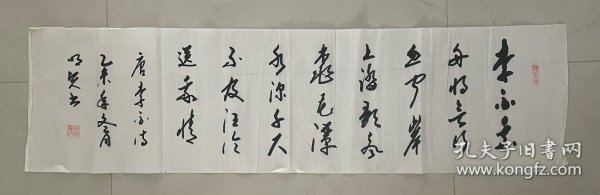 李白乘
舟将欲行
忽闻岸
上踏歌声
桃花潭
水深千尺
不及汪伦
送我情
唐李白诗
乙未年
书
孔夫子旧书网
www.kongfz.com